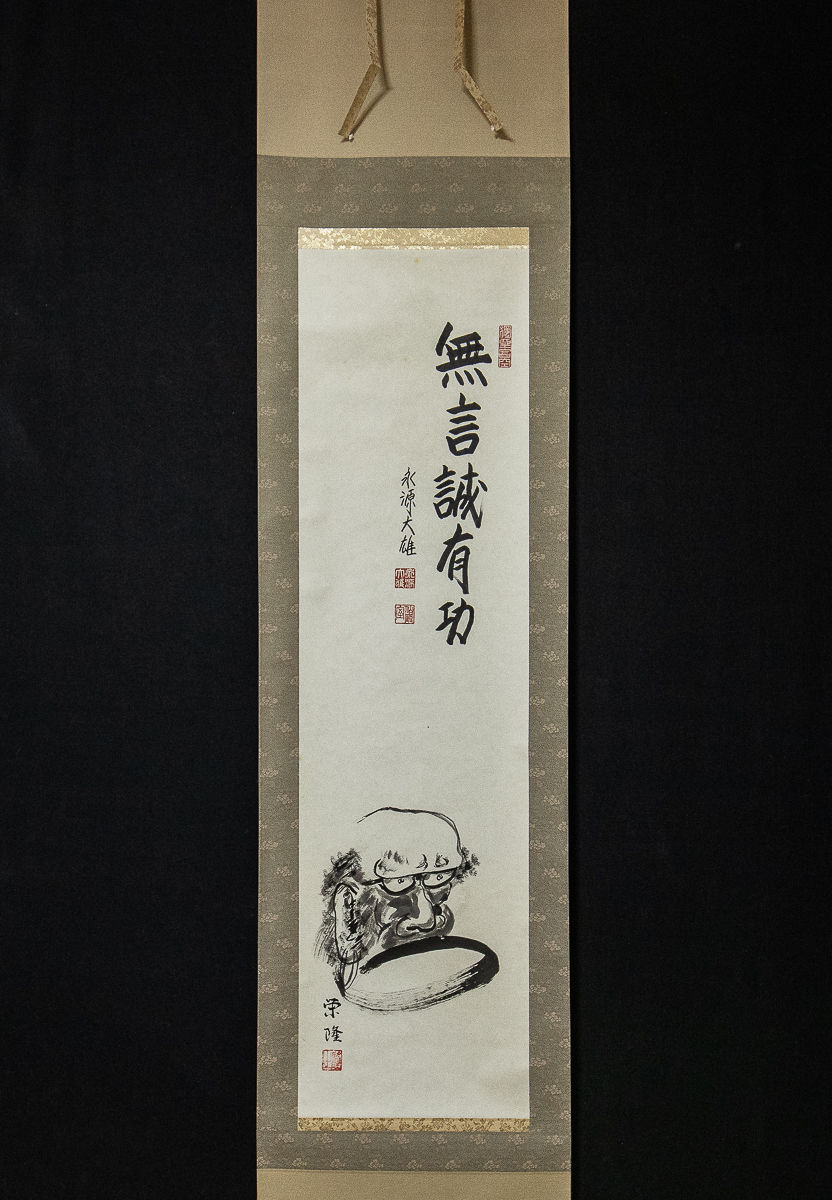 無言誠有功
永源大雄
栄隆